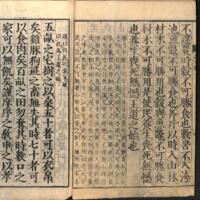 不違農時穀不可勝食也數罟不入洿
池魚鼈不可勝食也斧斤以時入山林
材木不可勝用也穀與魚鼈不可勝食
材木不可勝用是使民養生喪死無憾
也養生喪死無憾王道之始也
五畝之宅樹之以桑五十者可以衣帛
矣雞豚狗彘之畜無失其時七十者可
以食肉矣百畝之田勿奪其時數口之
家可以無飢矣謹庠序之教申之以孝